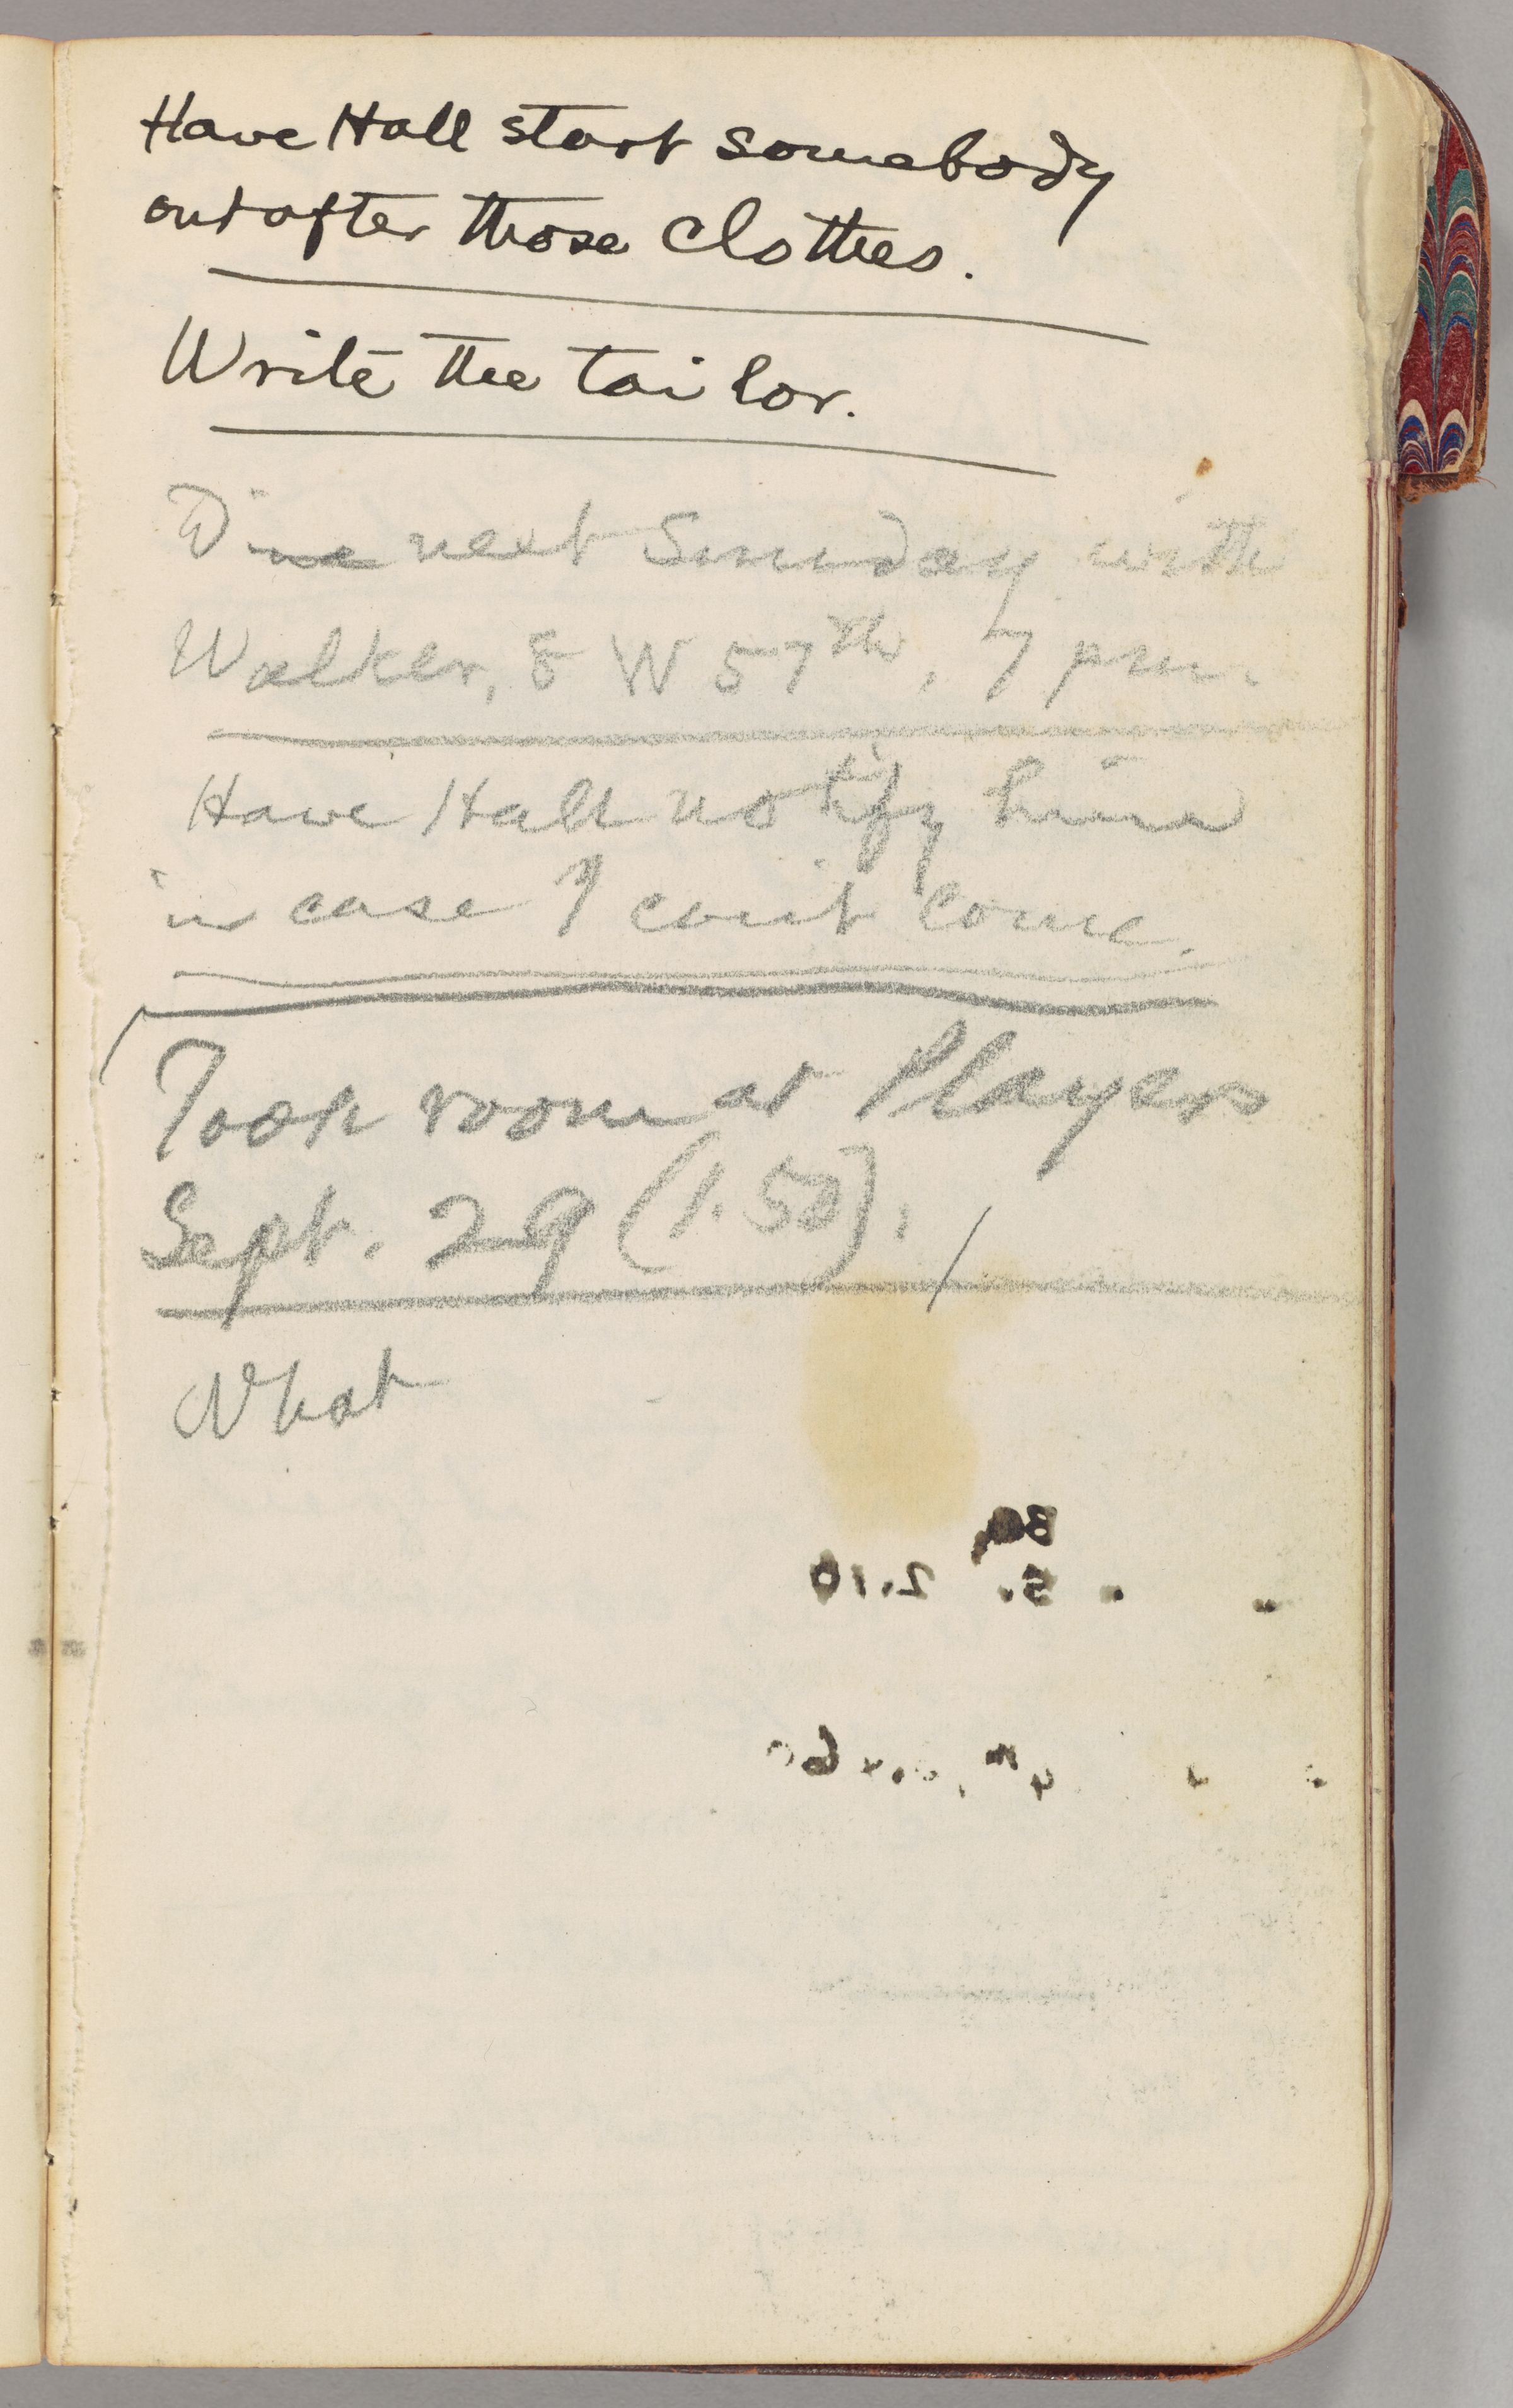 Have Hall start somebody
out after those clothes.
Write the tailor.
Dine next Sunday with
Walker, 8 W 57th, 7 pm.
Have Hall notify him
in case I can't come.
Took room at Players
Sept. 29 (1.50).
What
5. 2.10